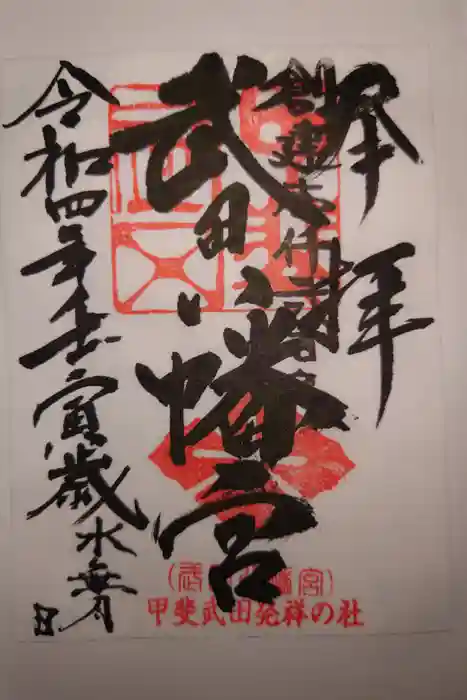 奉拝
創建
武田八幡宮
令和四年壬寅歳水無月 日
(武田八幡宮)
甲斐武田発祥の社